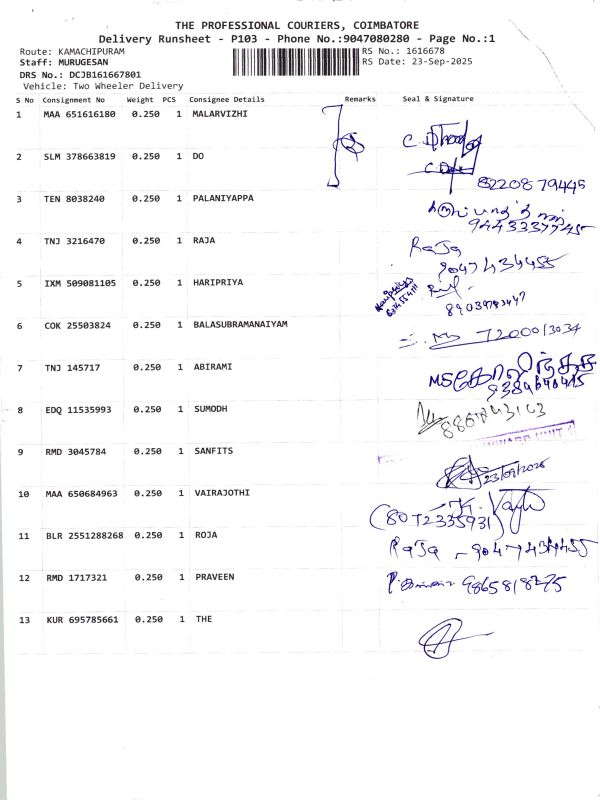 THE PROFESSIONAL COURIERS, COIMBATORE
Delivery Runsheet - P103 - Phone No.:9047080280 - Page No.:1
Route: KAMACHIPURAM RS No.: 1616678
Staff: MURUGESAN RS Date: 23-Sep-2025
DRS No.: DCJB161667801
Vehicle: Two Wheeler Delivery
S No Consignment No Weight PCS Consignee Details Remarks Seal & Signature
1 MAA 651616180 0.250 1 MALARVIZHI
2 SLM 378663819 0.250 1 DO
8220879445
3 TEN 8038240 0.250 1 PALANIYAPPA
4 TNJ 3216470 0.250 1 RAJA RaJa
9047434455
5 IXM 509081105 0.250 1 HARIPRIYA
6 COK 25503824 0.250 1 BALASUBRAMANAIYAM
7 TNJ 145717 0.250 1 ABIRAMI
8 EDQ 11535993 0.250 1 SUMODH
9 RMD 3045784 0.250 1 SANFITS
23/09/2025
10 MAA 650684963 0.250 1 VAIRAJOTHI
(8072335931)
11 BLR 2551288268 0.250 1 ROJA RaJa - 9047434455
12 RMD 1717321 0.250 1 PRAVEEN
13 KUR 695785661 0.250 1 THE